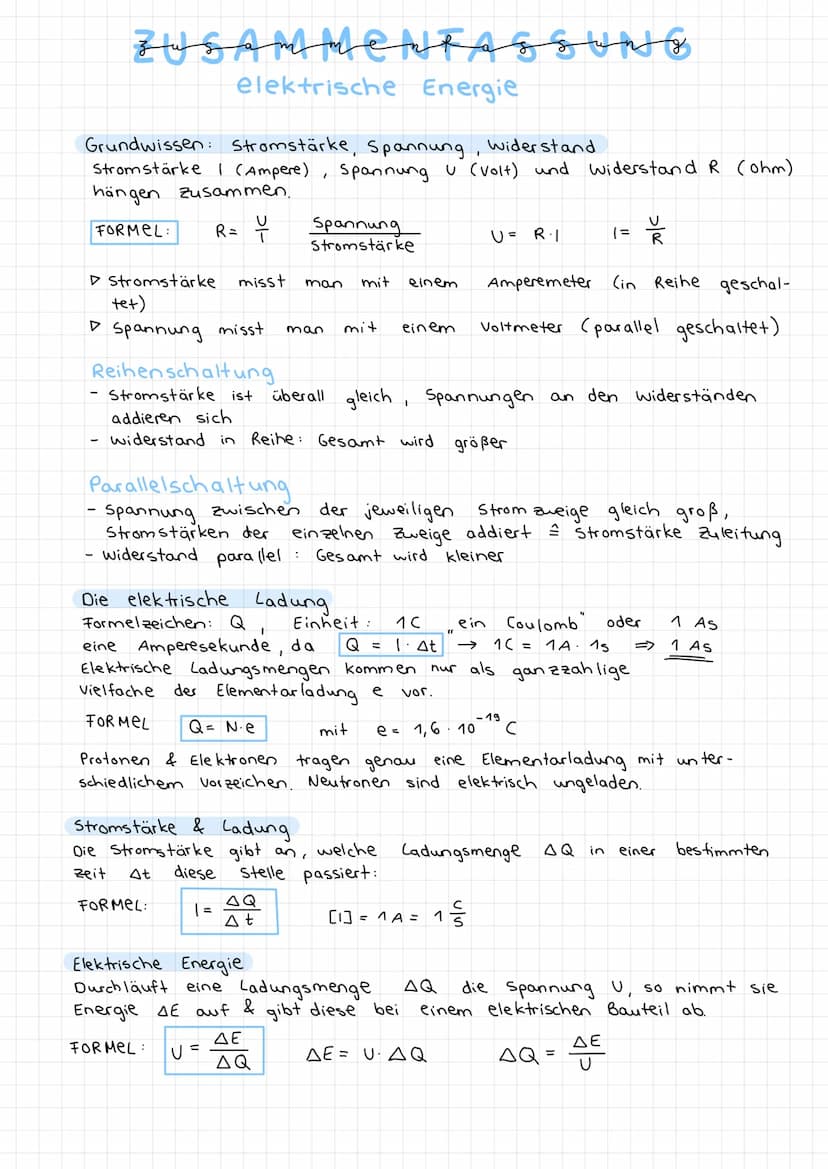 ZUSAMMENFASSUNG
zusammenfassung
elektrische Energie
Grundwissen: Stromstärke, Spannung, Widerstand
Stromstärke I (Ampere), Spannung U (Volt) und Widerstand R (Ohm)
hängen zusammen.
FORMEL: R = U/I Spannung/Stromstärke U = R·I I = U/R
▷ Stromstärke misst man mit einem Amperemeter (in Reihe geschal-
tet)
▷ Spannung misst man mit einem Voltmeter (parallel geschaltet)
Reihenschaltung
- Stromstärke ist überall gleich, Spannungen an den Widerständen
addieren sich
- Widerstand in Reihe: Gesamt wird größer
Parallelschaltung
- Spannung zwischen der jeweiligen Stromzweige gleich groß,
Stromstärken der einzelnen Zweige addiert ≙ Stromstärke Zuleitung
- Widerstand parallel: Gesamt wird kleiner
Die elektrische Ladung
Formelzeichen: Q, Einheit: 1C "ein Coulomb" oder 1 As
eine Amperesekunde, da Q = I·Δt → 1C = 1A·1s ⇒ 1 As
Elektrische Ladungsmengen kommen nur als ganzzahlige
Vielfache der Elementarladung e vor.
FORMEL Q = N·e mit e = 1,6·10⁻¹⁹ C
Protonen & Elektronen tragen genau eine Elementarladung mit unter-
schiedlichem Vorzeichen. Neutronen sind elektrisch ungeladen.
Stromstärke & Ladung
Die Stromstärke gibt an, welche Ladungsmenge ΔQ in einer bestimmten
Zeit Δt diese Stelle passiert:
FORMEL: I = ΔQ/Δt [I] = 1A = 1 C/S
Elektrische Energie
Durchläuft eine Ladungsmenge ΔQ die Spannung U, so nimmt sie
Energie ΔE auf & gibt diese bei einem elektrischen Bauteil ab.
FORMEL: U = ΔE/ΔQ ΔE = U·ΔQ ΔQ = ΔE/U